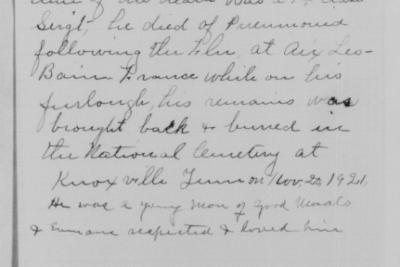 time of his death was a 1st Class
Sergt, he died of Pneumonia
following the Flu, at Aix Les-
Bain France while on his
furlough, his remains was
brought back & buried in
the National Cemetery at
Knoxville Tenn on Nov. 20, 1921.
He was a young man of Good Morals
& respected & loved him